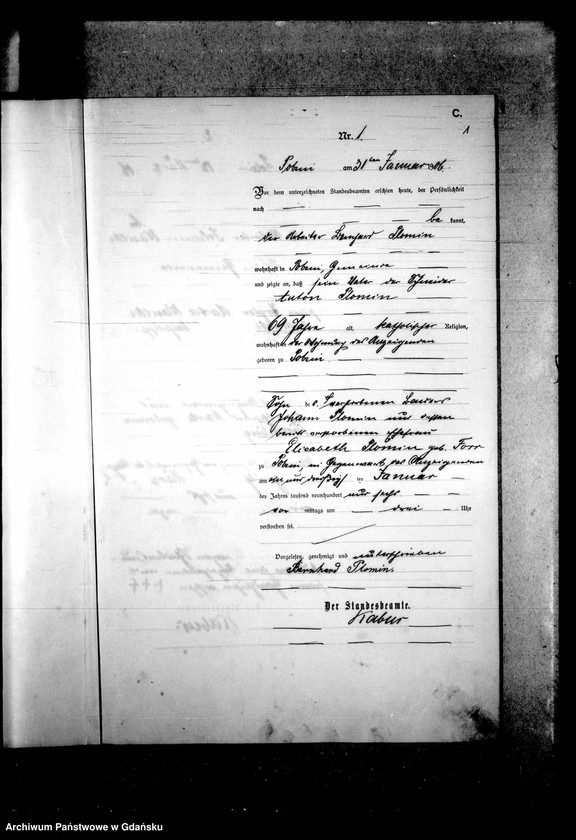 C.
1
Nr. 1.
am 31ten Januar 06.
Vor dem unterzeichneten Standesbeamten erschien heute, der Persönlichkeit
nach
be kannt,
der Arbeiter Bernhard Plomin
wohnhaft in Gemeinde
und zeigte an, daß sein Vater der Schneider
Anton Plomin
69 Jahre alt, katholischer Religion,
wohnhaft in der Wohnung des Anzeigenden
geboren zu
Sohn des verstorbenen
Johann Plomin und dessen
bereits verstorbenen Ehefrau
Elisabeth Plomin geb.
zu in Gegenwart des Anzeigenden
am ein und dreißigsten Januar
des Jahres tausend neunhundert und sechs
vor mittags um drei Uhr
verstorben sei.
Vorgelesen, genehmigt und unterschrieben
Bernhard Plomin.
Der Standesbeamte.
Kabus
Archiwum Państwowe w Gdańsku